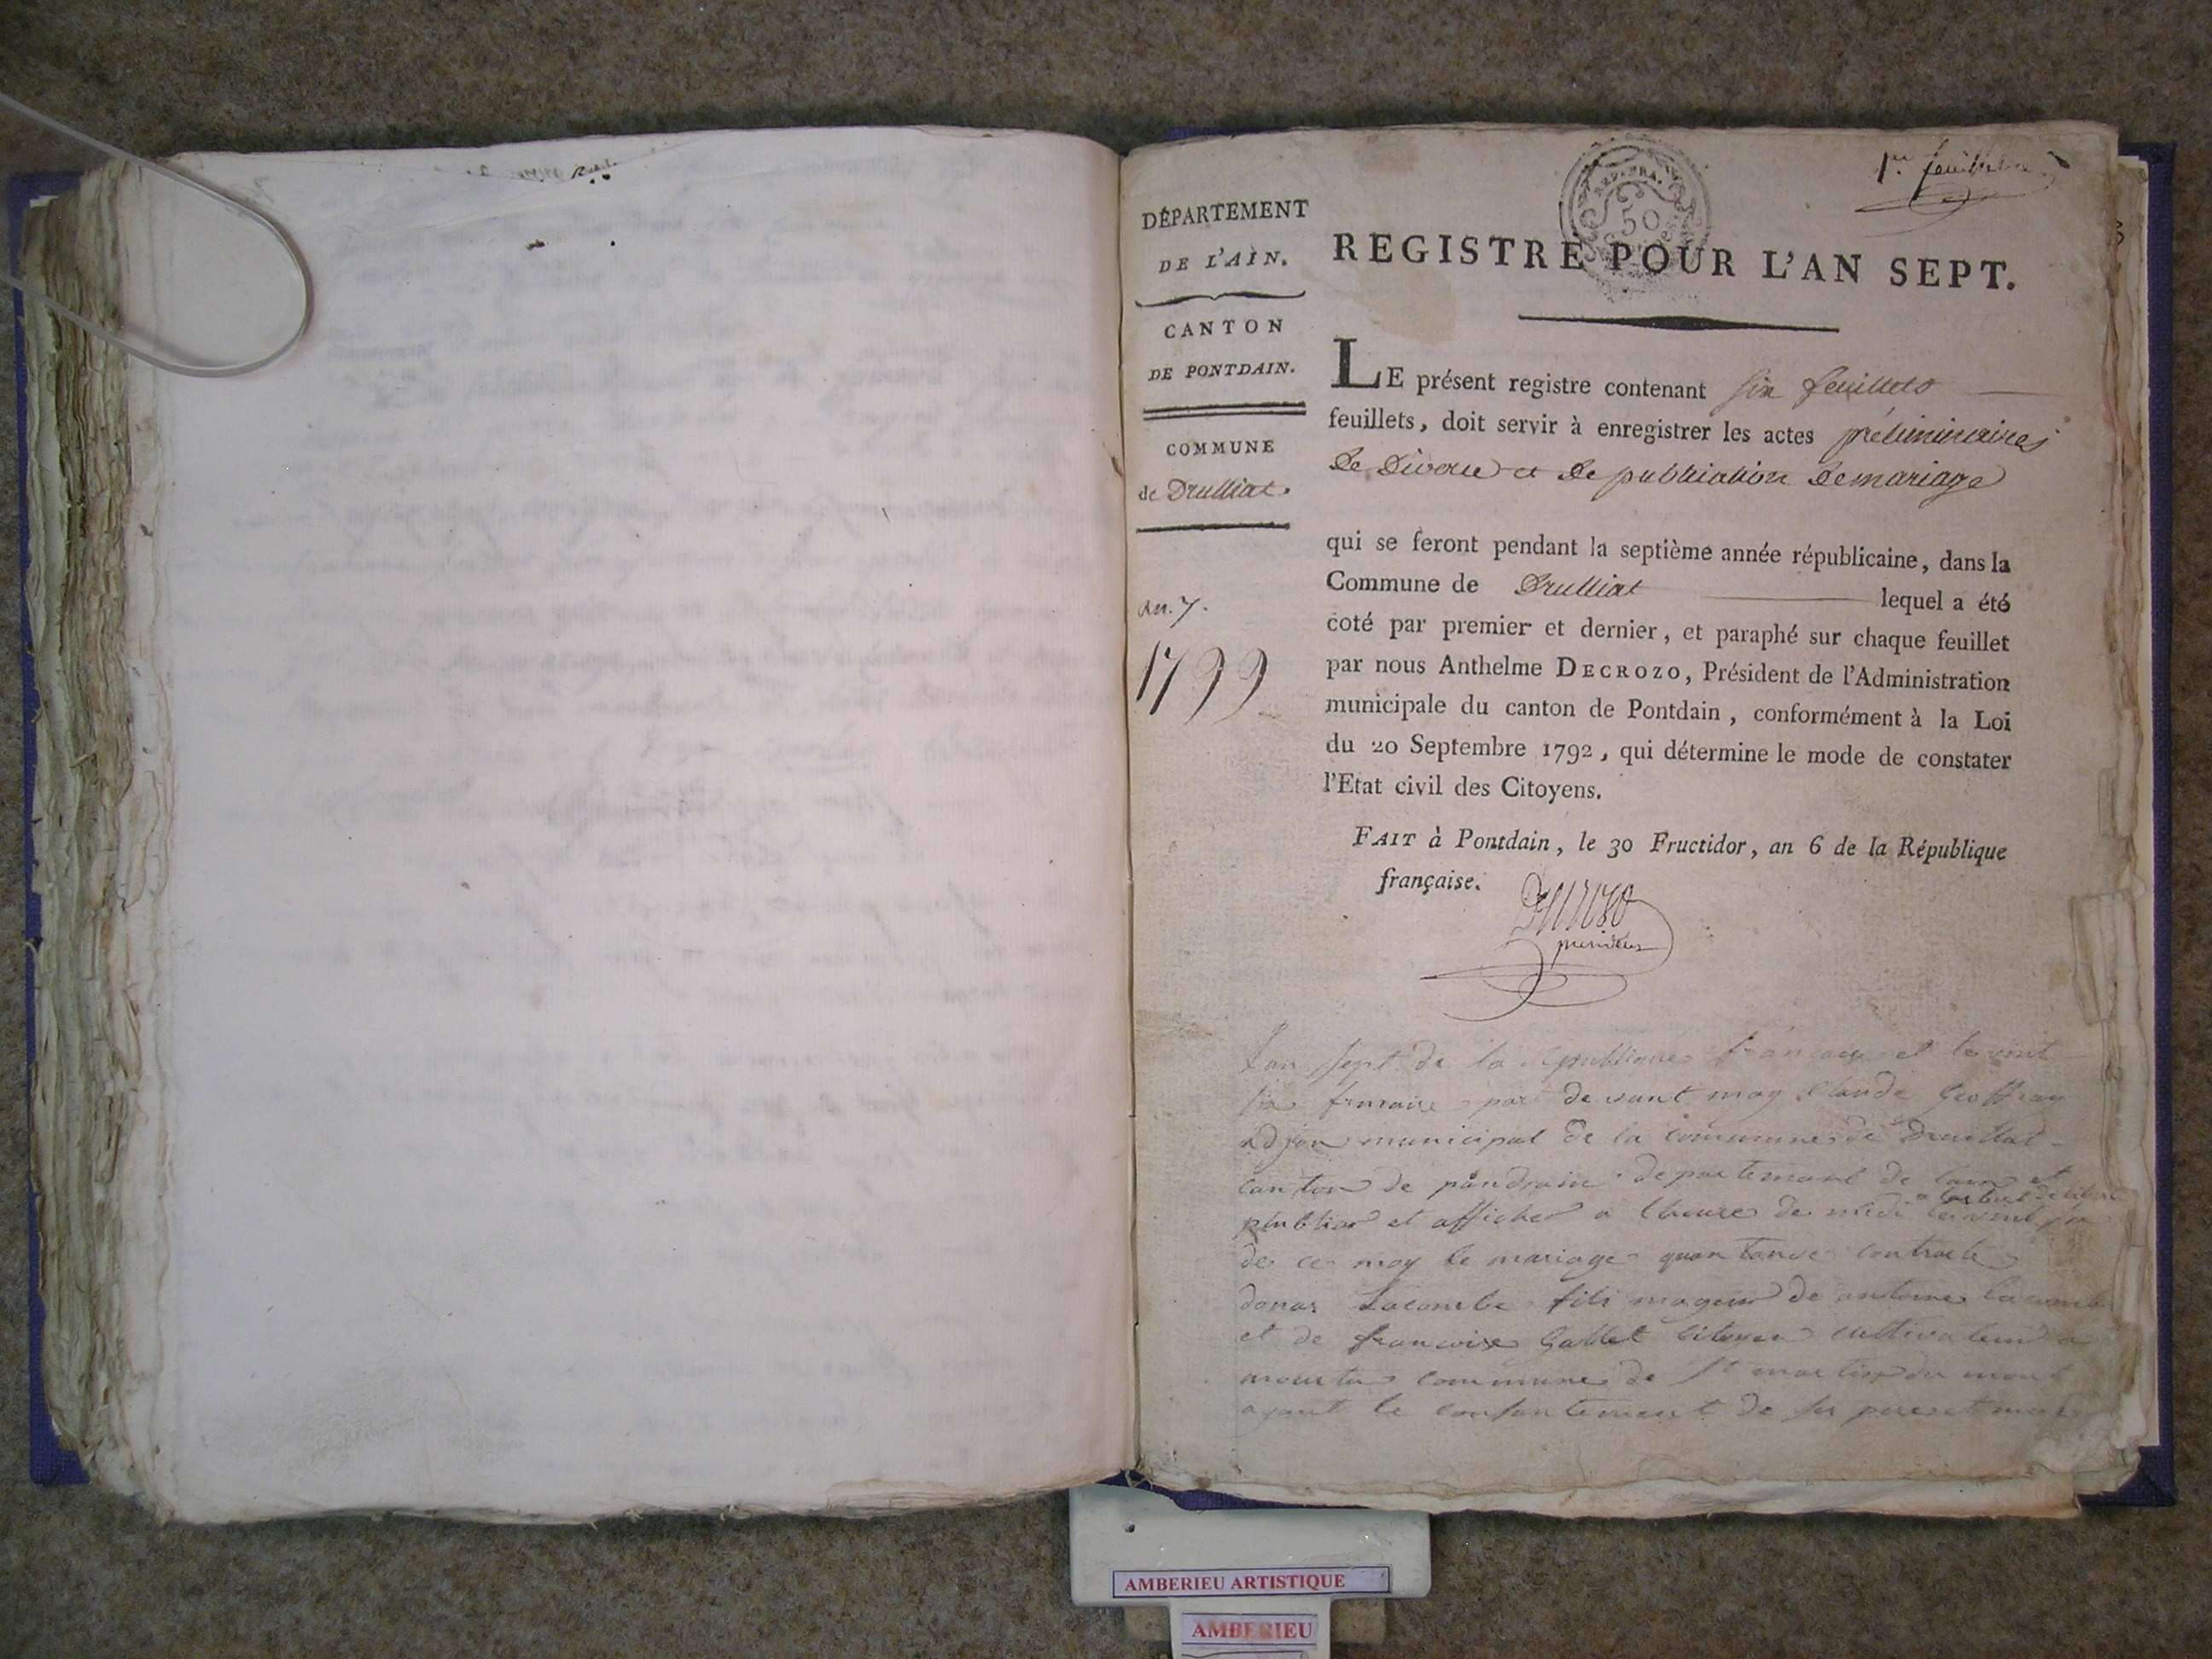 1er feuillet
REP. FRA.
50
DÉPARTEMENT
DE L'AIN.
CANTON
DE PONTDAIN.
COMMUNE
de Drulliat.
an. 7.
1799
REGISTRE POUR L'AN SEPT.
LE présent registre contenant six feuillets
feuillets, doit servir à enregistrer les actes préliminaires
de Divorce et de publication de mariage
qui se feront pendant la septième année républicaine, dans la
Commune de Drulliat lequel a été
coté par premier et dernier, et paraphé sur chaque feuillet
par nous Anthelme DECROZO, Président de l'Administration
municipale du canton de Pontdain, conformément à la Loi
du 20 Septembre 1792, qui détermine le mode de constater
l'Etat civil des Citoyens.
FAIT à Pontdain, le 30 Fructidor, an 6 de la République
française.
Decrozo
president
Lan sept de la republique francaise et le vint
six frimaire par devant moy Claude Geoffray
adjoin municipal de la commune de Druillat
canton de pondain departement de lain et
publier et afficher a lheure de midi le vint six
de ce moy le mariage quantande contracte
donas Lacombe fils mageur de antoine lacombe
et de francoise Gallet citoyen cultivateur a
commune de St martin du mont
ayant le consantement de ses pere et mere
AMBERIEU ARTISTIQUE
AMBERIEU